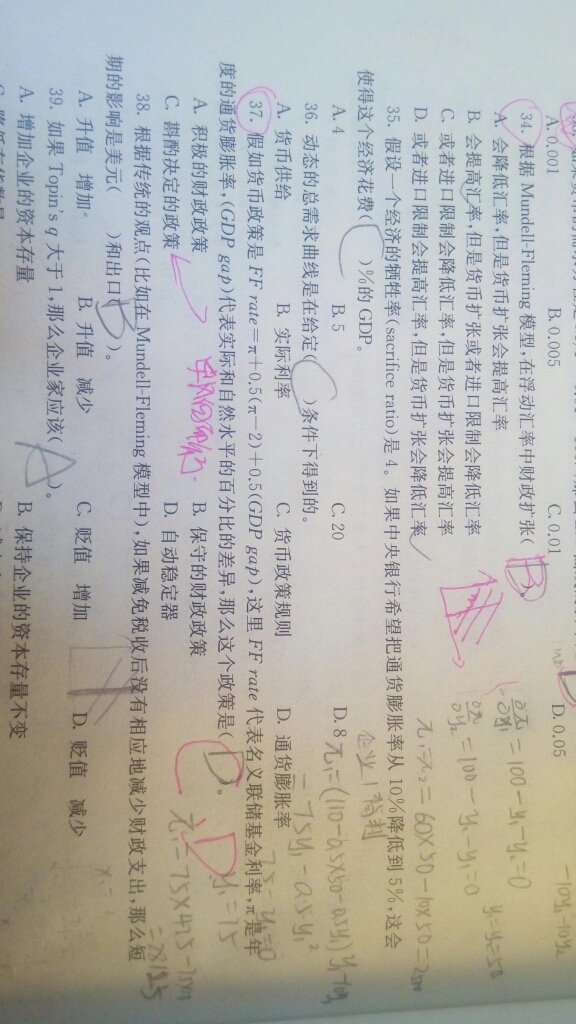 A. 0.001 B. 0.005 C. 0.01 D. 0.05
34. 根据 Mundell-Fleming 模型,在浮动汇率中财政扩张( B
A. 会降低汇率,但是货币扩张会提高汇率
B. 会提高汇率,但是货币扩张或者进口限制会降低汇率
C. 或者进口限制会降低汇率,但是货币扩张会提高汇率
D. 或者进口限制会提高汇率,但是货币扩张会降低汇率
35. 假设一个经济的牺牲率(sacrifice ratio)是 4。如果中央银行希望把通货膨胀率从 10%降低到 5%,这会
使得这个经济花费( C )%的 GDP。
A. 4 B. 5 C. 20 D. 8
36. 动态的总需求曲线是在给定( C )条件下得到的。
A. 货币供给 B. 实际利率 C. 货币政策规则 D. 通货膨胀率
37. 假如货币政策是 FF rate=π+0.5(π−2)+0.5(GDP gap),这里 FF rate 代表名义联储基金利率,π是年
度的通货膨胀率,(GDP gap)代表实际和自然水平的百分比的差异,那么这个政策是( D )。
A. 积极的财政政策 B. 保守的财政政策
C. 斟酌决定的政策 D. 自动稳定器
38. 根据传统的观点(比如在 Mundell-Fleming 模型中),如果减免税收后没有相应地减少财政支出,那么短
期的影响是美元( )和出口( B )。
A. 升值 增加 B. 升值 减少 C. 贬值 增加 D. 贬值 减少
39. 如果 Topin's q 大于 1,那么企业家应该( A )。
A. 增加企业的资本存量 B. 保持企业的资本存量不变
−10y₁−10y₂
∂π/∂y₁ = 100 − y₁ − y₂ = 0
y₁=y₂=50
∂π/∂y₂ = 100 − y₂ − y₁ = 0
π₁=π₂= 60×50 − 10×50 = 2000
企业1
= 75y₁ − 0.5y₁²
75 − y₁ = 0
y₁=75
D